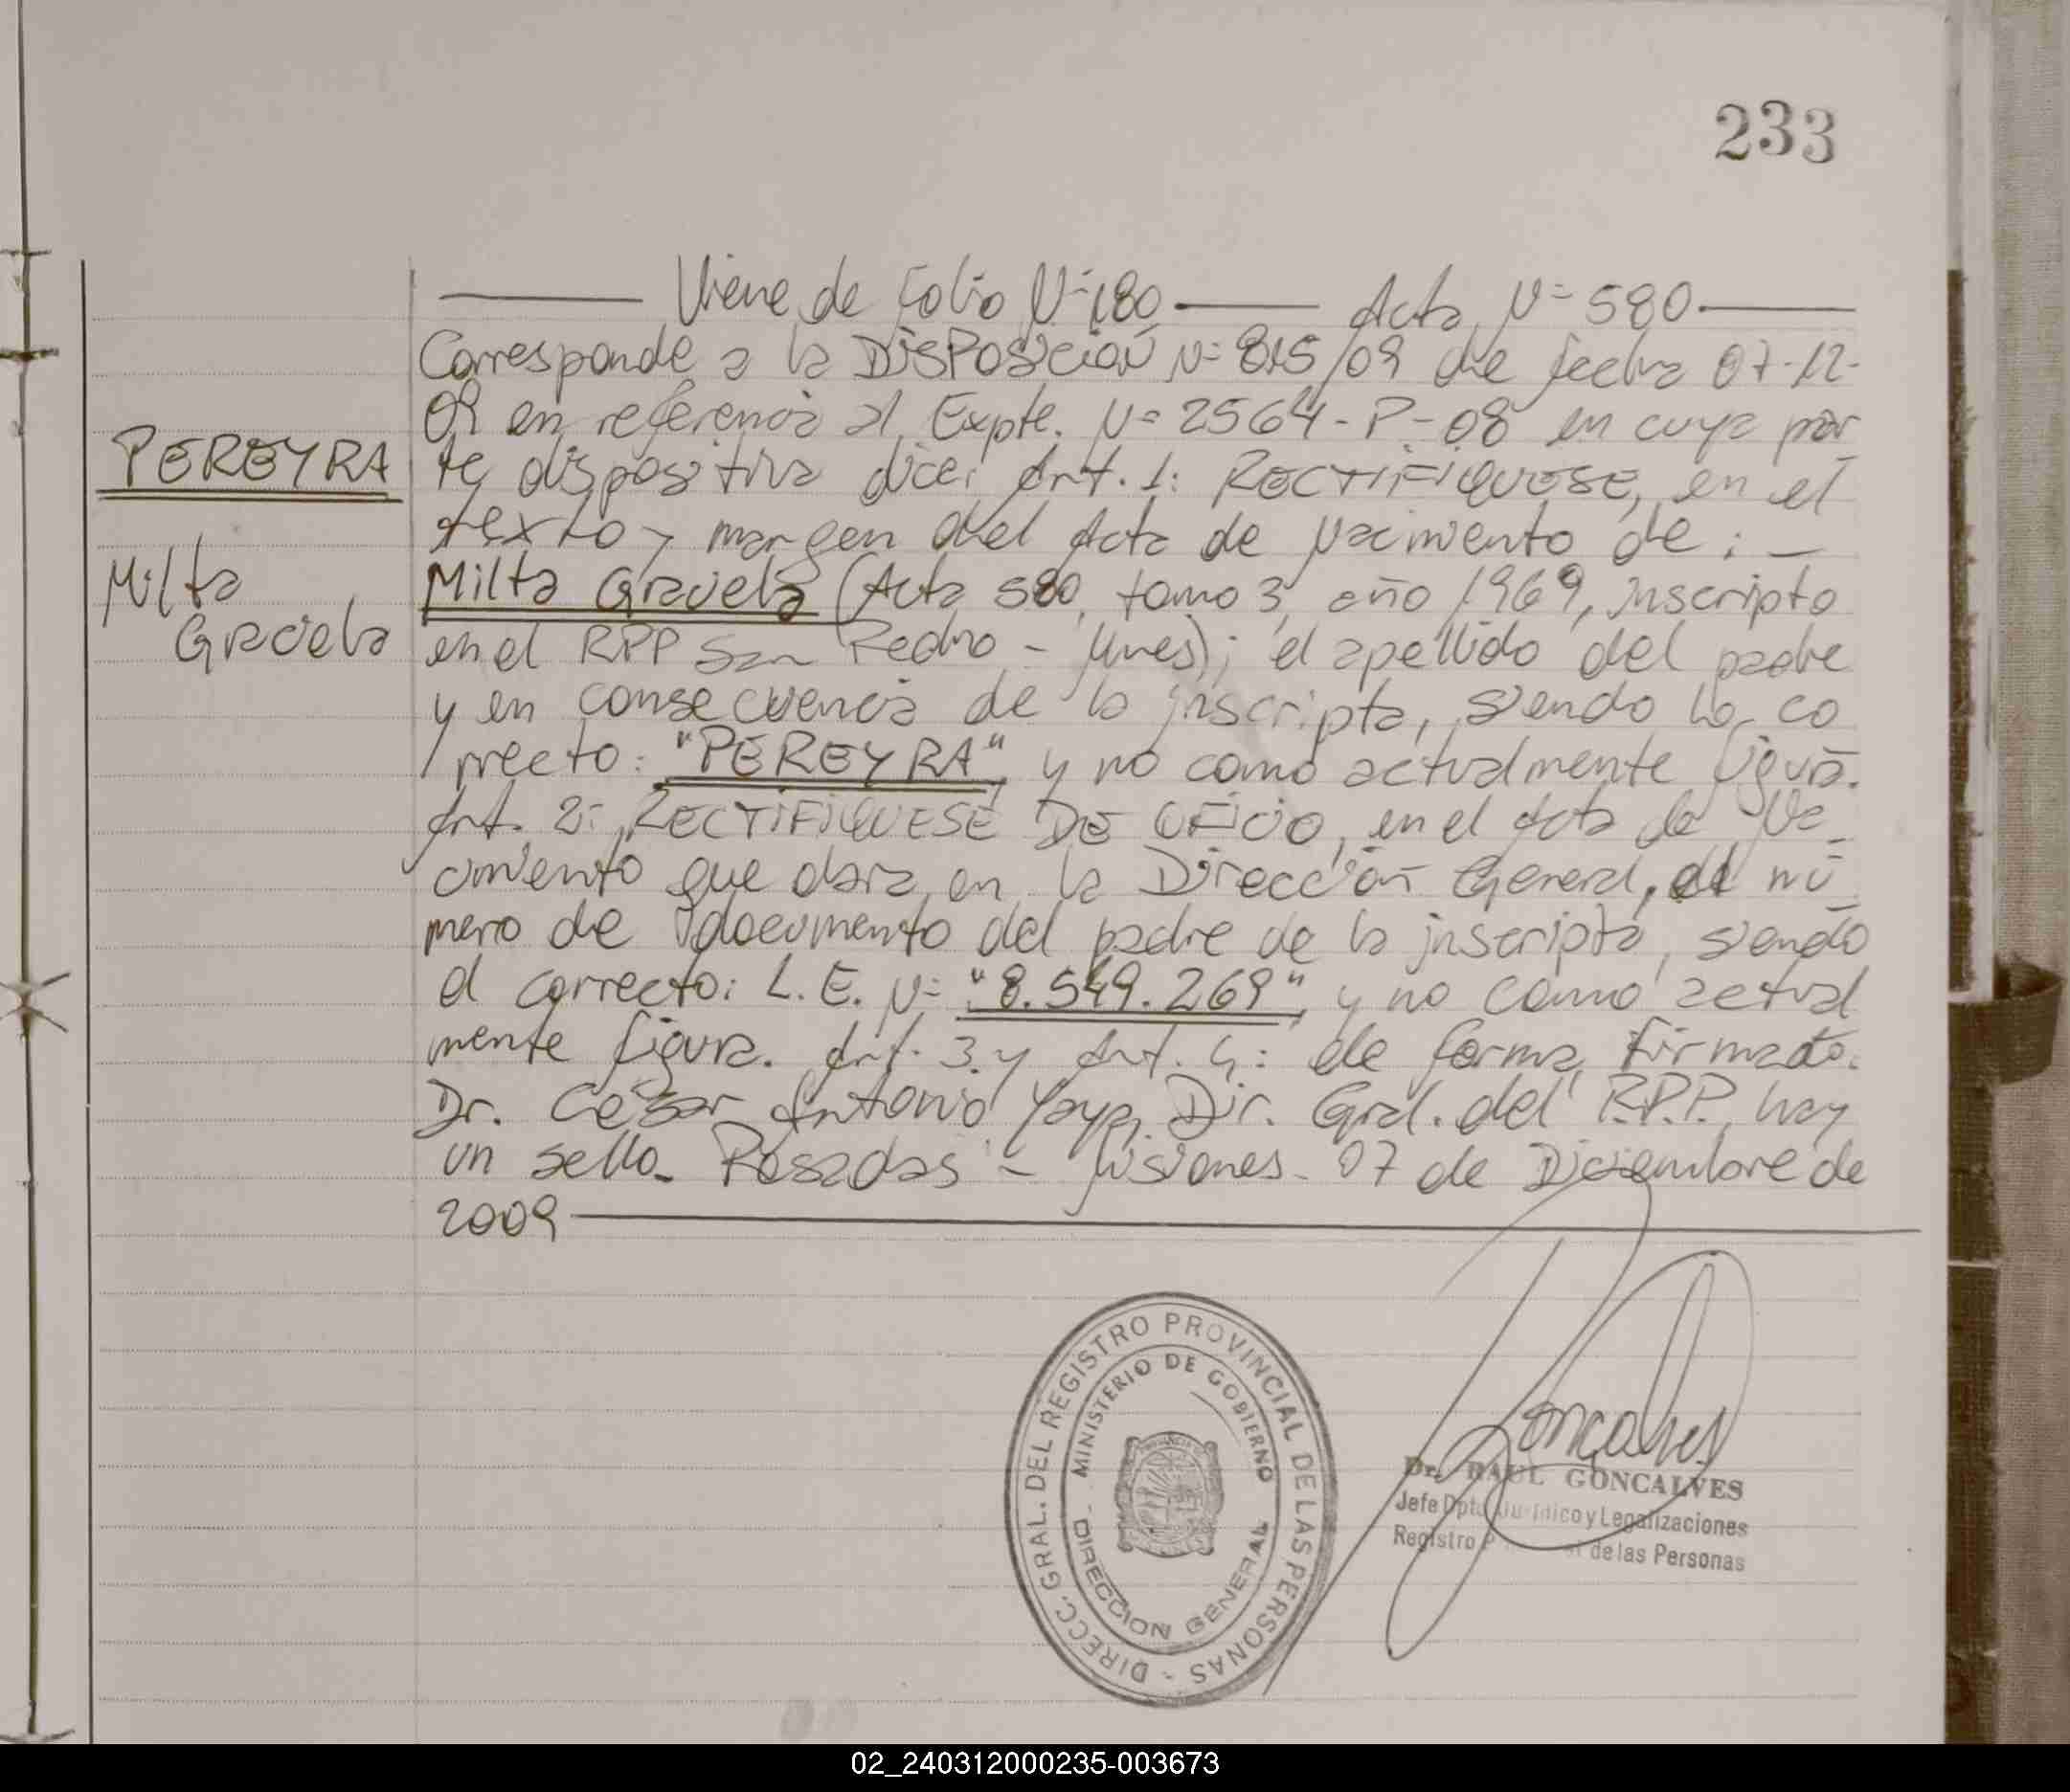 233
Viene de Folio Nº 180 Acta Nº 580
Corresponde a la DISPOSICIÓN Nº 815/09 de fecha 07-12-
09 en referencia al Expte. Nº 2564-P-08 en cuya par
PEREYRA
te dispositiva dice: Art. 1: RECTIFIQUESE, en el
texto y margen del Acta de Nacimiento de:
Milta
Graciela
Milta Graciela (Acta 580, tomo 3, año 1969, inscripto
en el RPP San Pedro - Mnes); el apellido del padre
y en consecuencia de la inscripta, siendo lo co
rrecto: "PEREYRA" y no como actualmente figura.
Art. 2: RECTIFIQUESE DE OFICIO, en el Acta de Na
cimiento que obra en la Dirección General, el nú
mero de documento del padre de la inscripta, siendo
el correcto: L.E. Nº "8.549.269" y no como actual
mente figura. Art. 3 y Art. 4: de forma, Firmado.
Dr. César Antonio Yaya, Dir. Gral. del R.P.P. hay
un sello. Posadas - Misiones. 07 de Diciembre de
2009
DIRECC. GRAL. DEL REGISTRO PROVINCIAL DE LAS PERSONAS -
MINISTERIO DE GOBIERNO
DIRECCION GENERAL
Goncalves
Dr. RAUL GONCALVES
Jefe Dpto Jurídico y Legalizaciones
Registro de las Personas
02_240312000235-003673